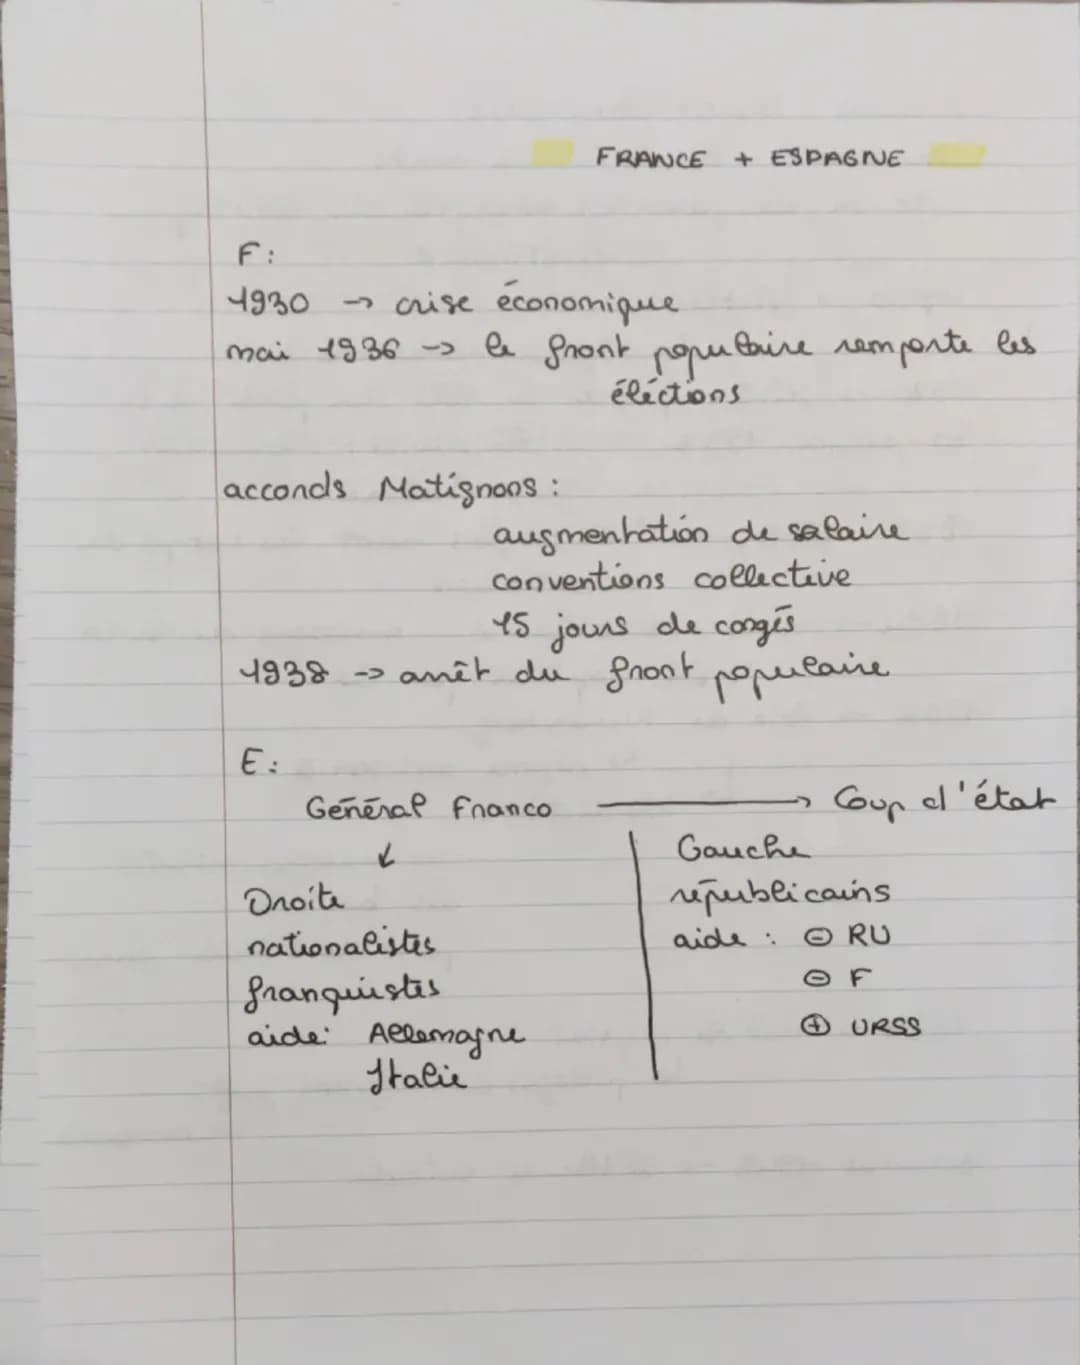 FRANCE + ESPAGNE
F:
1930 → crise économique
mai 1936 → le front populaire remporte les
éléctions
accords Matignons :
augmentation de salaire
conventions collective
15 jours de congés
1938 → arrêt du front populaire
E:
Général Franco → Coup d'état
↙
Gauche
Droite
républicains
nationalistes
aide : ⊖ RU
franquistes
⊖ F
aide: Allemagne
⊕ URSS
Italie